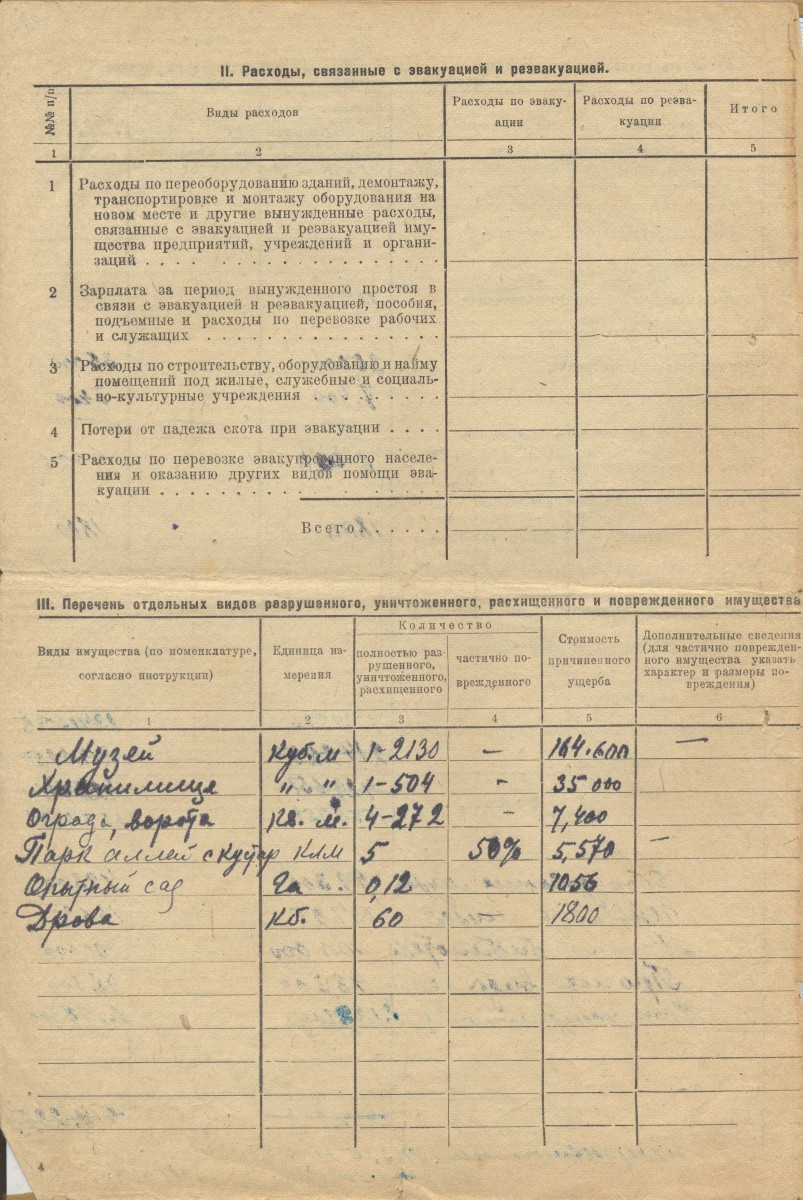 II. Расходы, связанные с эвакуацией и реэвакуацией.
№№ п/п
Виды расходов
Расходы по эваку-
ации
Расходы по реэва-
куации
Итого
1 2 3 4 5
1 Расходы по переоборудованию зданий, демонтажу,
транспортировке и монтажу оборудования на
новом месте и другие вынужденные расходы,
связанные с эвакуацией и реэвакуацией иму-
щества предприятий, учреждений и органи-
заций . . . . . . . . . . . . . . . . .
2 Зарплата за период вынужденного простоя в
связи с эвакуацией и реэвакуацией, пособия,
подъемные и расходы по перевозке рабочих
и служащих . . . . . . . . . . . . . .
3 Расходы по строительству, оборудованию и найму
помещений под жилые, служебные и социаль-
но-культурные учреждения . . . . . . . .
4 Потери от падежа скота при эвакуации . . . .
5 Расходы по перевозке эвакуированного населе-
ния и оказанию других видов помощи эва-
куации . . . . . . . . . . . . . . . .
Всего . . . . .
III. Перечень отдельных видов разрушенного, уничтоженного, расхищенного и поврежденного имущества
Виды имущества (по номенклатуре,
согласно инструкции)
Единица из-
мерения
Количество
полностью раз-
рушенного,
уничтоженного,
расхищенного
частично по-
врежденного
Стоимость
причиненного
ущерба
Дополнительные сведения
(для частично поврежден-
ного имущества указать
характер и размеры по-
вреждения)
1 2 3 4 5 6
Музей куб. м 1-2130 — 164.600 —
Хранилище " " 1-504 - 35000
Ограда, ворота кв. м. 4-272 - 7,400
Парк аллей с кустар клм 5 50% 5,570 —
Опытный сад Га 0,12 1056
Дрова кб. 60 — 1800
4